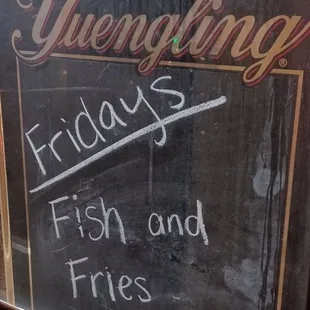 Yuengling®
Fridays
Fish and
Fries